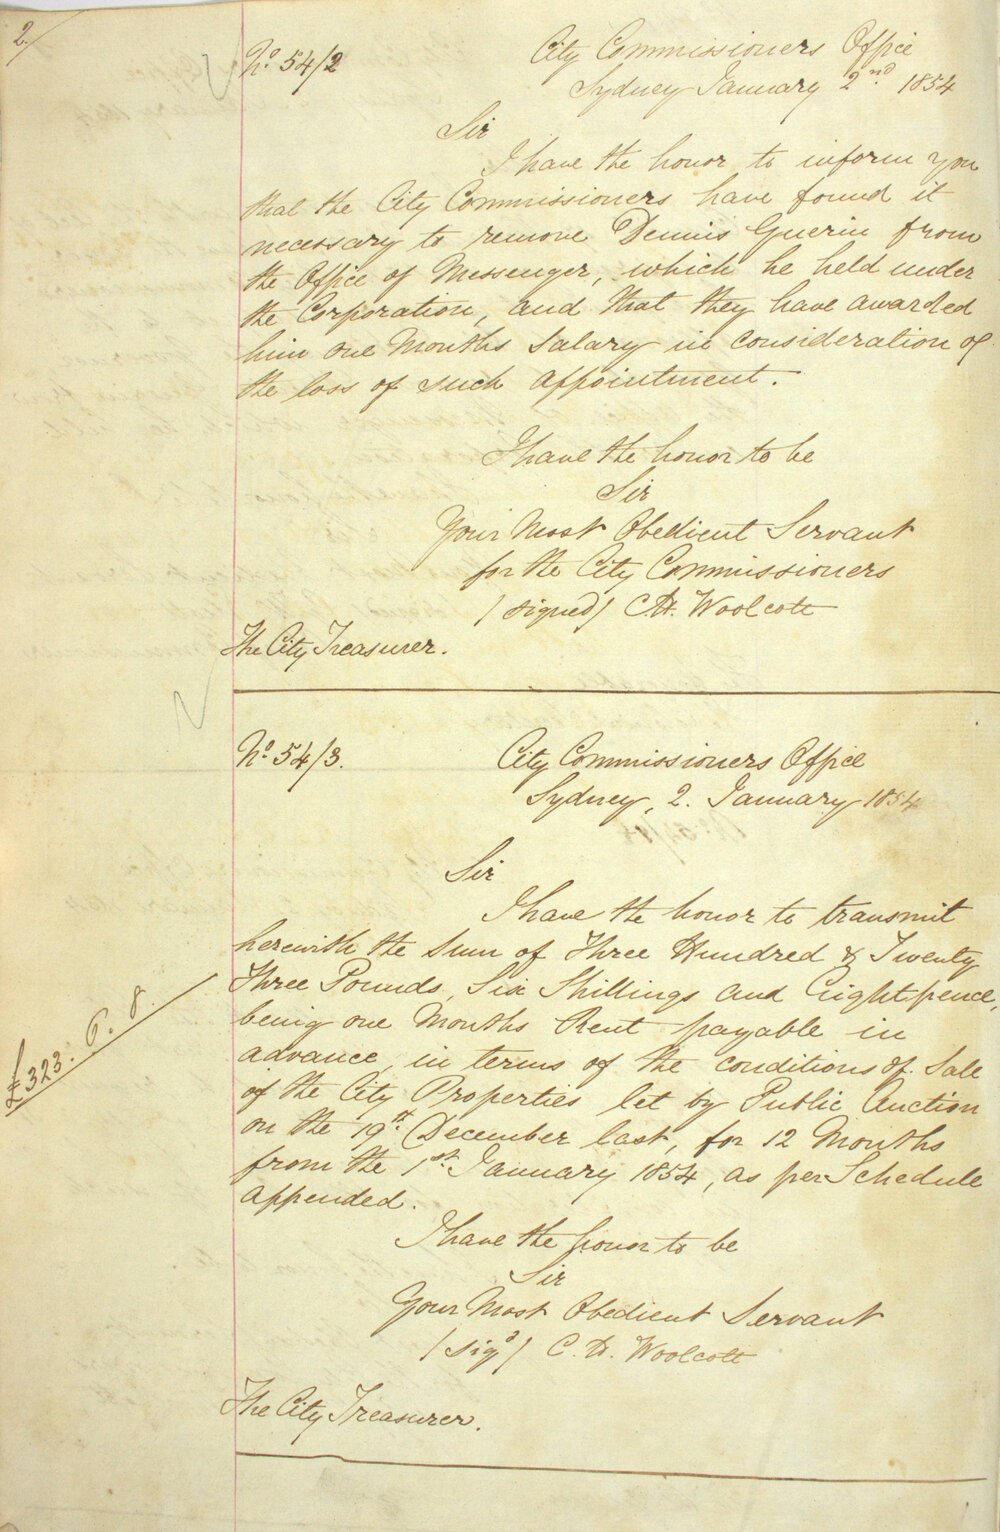 2/
No. 54/2
City Commissioners Office
Sydney January 2nd. 1854
Sir
I have the honor to inform you
that the City Commissioners have found it
necessary to remove Dennis Guerin from
the Office of Messenger, which he held under
the Corporation, and that they have awarded
him one Months Salary in consideration of
the loss of such appointment.
I have the honor to be
Sir
Your Most Obedient Servant
for the City Commissioners
/signed/ C.H. Woolcott
The City Treasurer.
No. 54/3.
City Commissioners Office
Sydney, 2. January 1854
Sir
I have the honor to transmit
herewith the Sum of Three Hundred & Twenty
Three Pounds, Six Shillings and Eightpence,
£323. 6. 8.
being one Months Rent payable in
advance, in terms of the conditions of Sale
of the City Properties let by Public Auction
on the 19th. December last, for 12 Months
from the 1st. January 1854, as per Schedule
appended.
I have the honor to be
Sir
Your Most Obedient Servant
/sigd/ C. H. Woolcott
The City Treasurer.